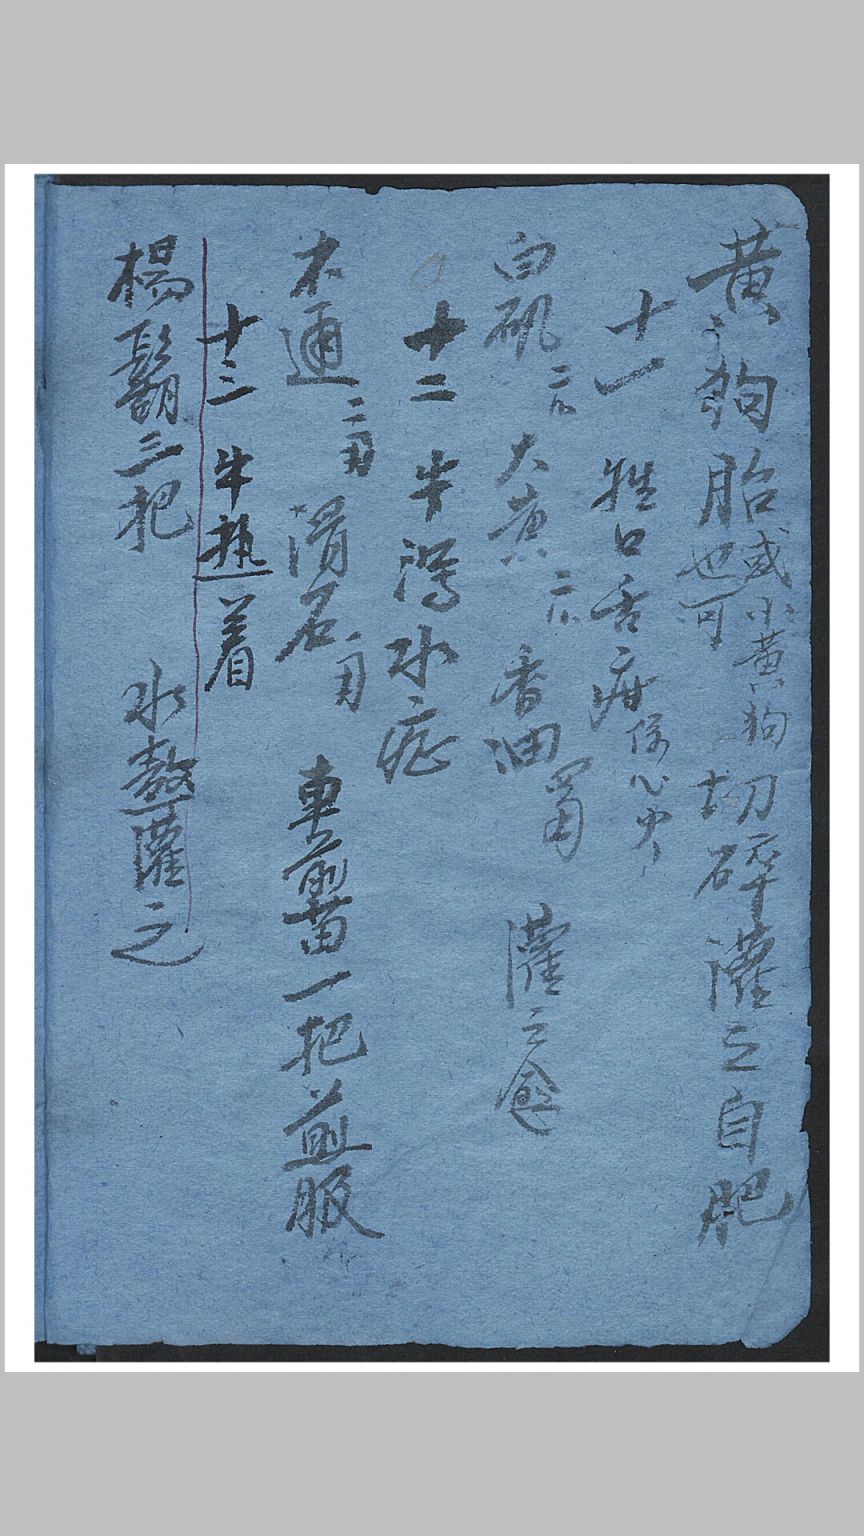 黄狗胎或小黄狗也可切碎灌之自肥
十一 牲口舌疳係心火
白矾二介大黄二介香油 灌之愈
十二 牛瀉水症
木通二刄滑石一刄車前苗一把煎服
十三 牛热着
楊鬍三把 水熬灌之